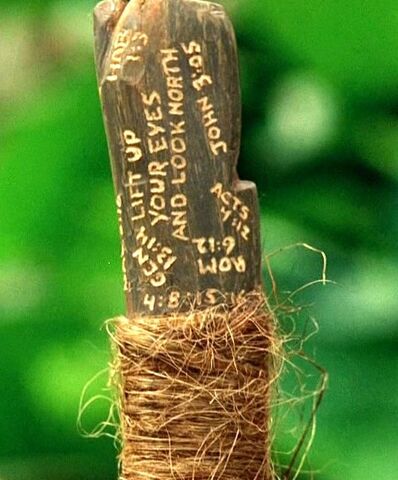 HAB
1:3
LIFT UP
YOUR EYES
AND LOOK NORTH
JOHN 3:05
ACTS
4:12
ROM
6:12
GEN
13:14
4:8:15:16